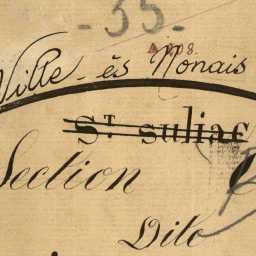 - 35 -
A 908.
Ville-ès Nonais
St suliac
Section
Dite